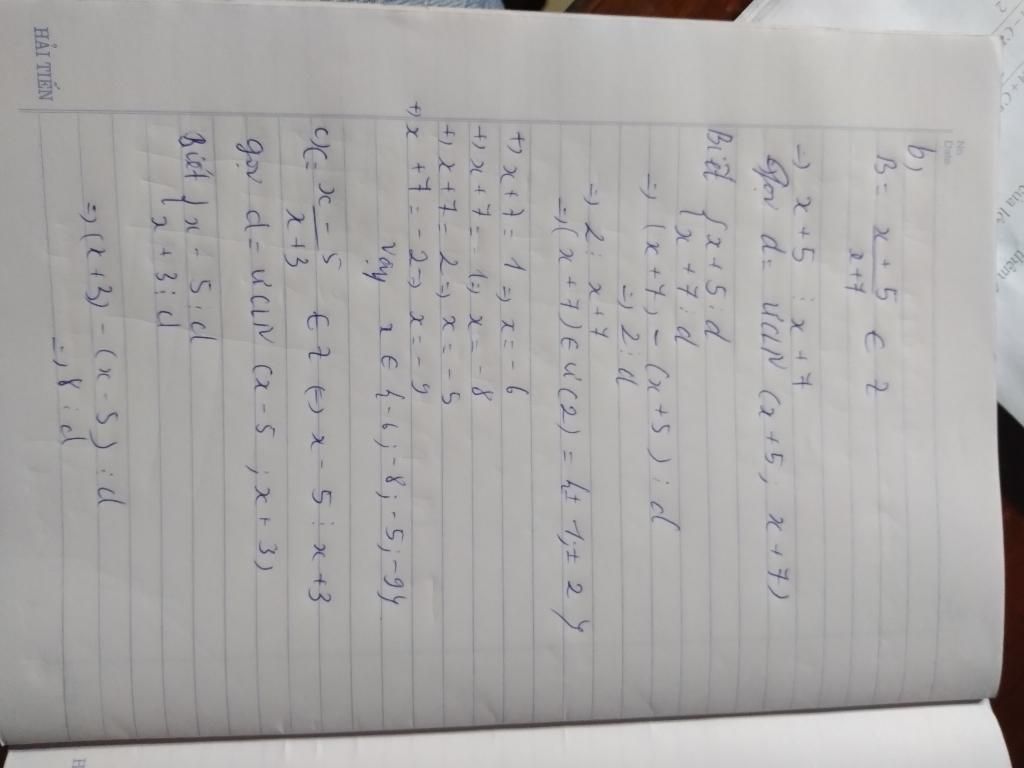 No
Date
b,
B = x + 5 / x+7 ∈ Z
=) x + 5 ⋮ x + 7
Gọi d = ƯCLN (x + 5 ; x + 7)
Biết { x + 5 ⋮ d
x + 7 ⋮ d
=) (x + 7) - (x + 5) ⋮ d
=) 2 ⋮ d
=) 2 ⋮ x + 7
=) (x + 7) ∈ Ư(2) = { ± 1; ± 2 }
+) x + 7 = 1 =) x = - 6
+) x + 7 = - 1 =) x = - 8
+) x + 7 = 2 =) x = - 5
+) x + 7 = - 2 =) x = - 9
Vậy x ∈ { - 6 ; - 8 ; - 5 ; - 9 }
C = x - 5 / x + 3 ∈ Z (=) x - 5 ⋮ x + 3
gọi d = ƯCLN (x - 5 ; x + 3)
Biết { x - 5 ⋮ d
x + 3 ⋮ d
=) (x + 3) - (x - 5) ⋮ d
=) 8 ⋮ d
HẢI TIẾN